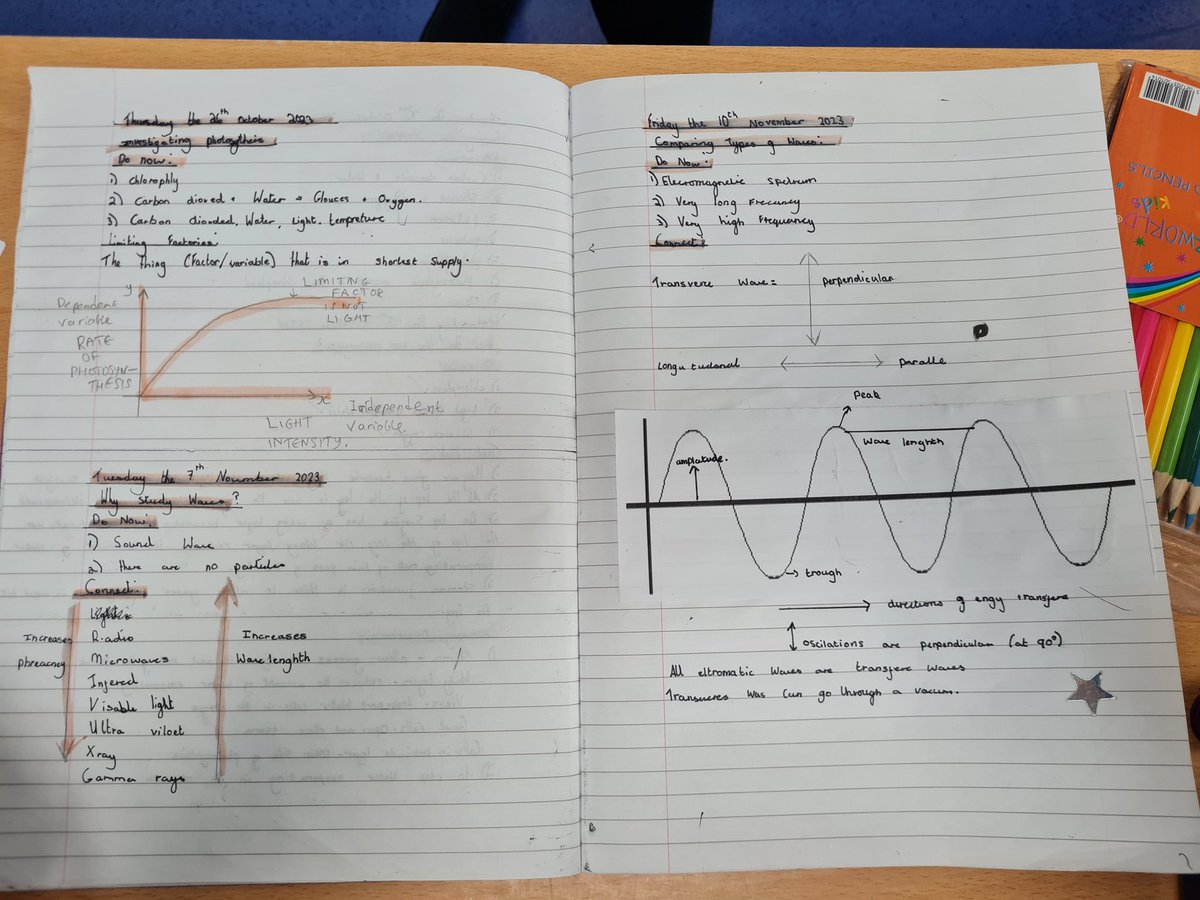 Thursday the 26th October 2023
Investigating photosythesis
Do now:
1) Chlorophly
2) Carbon dioxed + Water → Glouces + Oxygen.
3) Carbon dioxded, Water, light, tempreture
Limiting Factories
The Thing (Factor/variable) that is in shortest supply.
y
LIMITING
FACTOR
IS NOT
LIGHT
Dependent
variable
RATE
OF
PHOTOSYN-
THESIS
x
Independent
Variable.
LIGHT
INTENSITY.
Tuesday the 7th November 2023
Why Study Waves?
Do Now:
1) Sound Wave
2) there are no particles
Connect:
Increases
phreacncy
Radio
Microwaves
Infered
Visable light
Ultra viloet
Xray
Gamma rays
Increases
Wave lenghth
Friday the 10th November 2023
Comparing Types of Waves:
Do Now:
1) Elecromagnetic Spetrum
2) Very long Frecuncy
3) Very high Frequency
Connect:
Transverse Wave =
perpendicular
Longutudanal
Paralle
Peak
Wave lenghth
amplatude.
trough
directions of engy transfere
Oscilations are perpendicular (at 90°)
All eltromatic Waves are transfere waves
Transveres Was Can go through a vacum.
WORLD
Kids
PENCILS